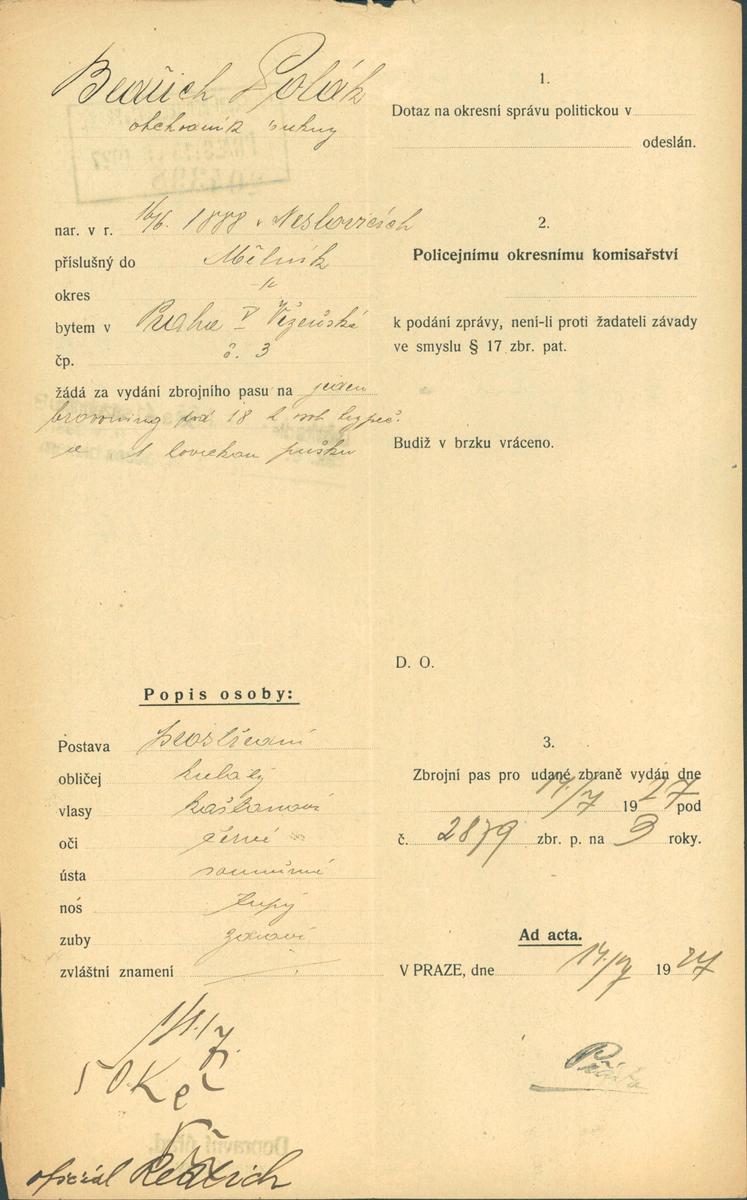 Bedřich Polák
obchodník sukny
nar. v r. 16/6. 1888 v Neslovicích
příslušný do Mělník
okres "
bytem v Praha V Vězeňská
čp. č. 3
žádá za vydání zbrojního pasu na jeden
browning pod 18 bezpeč.
a 1 loveckou pušku
Popis osoby:
Postava prostřední
obličej kulatý
vlasy kaštanové
oči černé
ústa souměrné
nos tupý
zuby zdravé
zvláštní znamení
50 Kč
oficiál Redlich
1.
Dotaz na okresní správu politickou v
odeslán.
2.
Policejnímu okresnímu komisařství
k podání zprávy, není-li proti žadateli závady
ve smyslu § 17 zbr. pat.
Budiž v brzku vráceno.
D. O.
3.
Zbrojní pas pro udané zbraně vydán dne
14/7 1927 pod
č. 2879 zbr. p. na 3 roky.
Ad acta.
V PRAZE, dne 14/7 1927
Dopravní úřad.